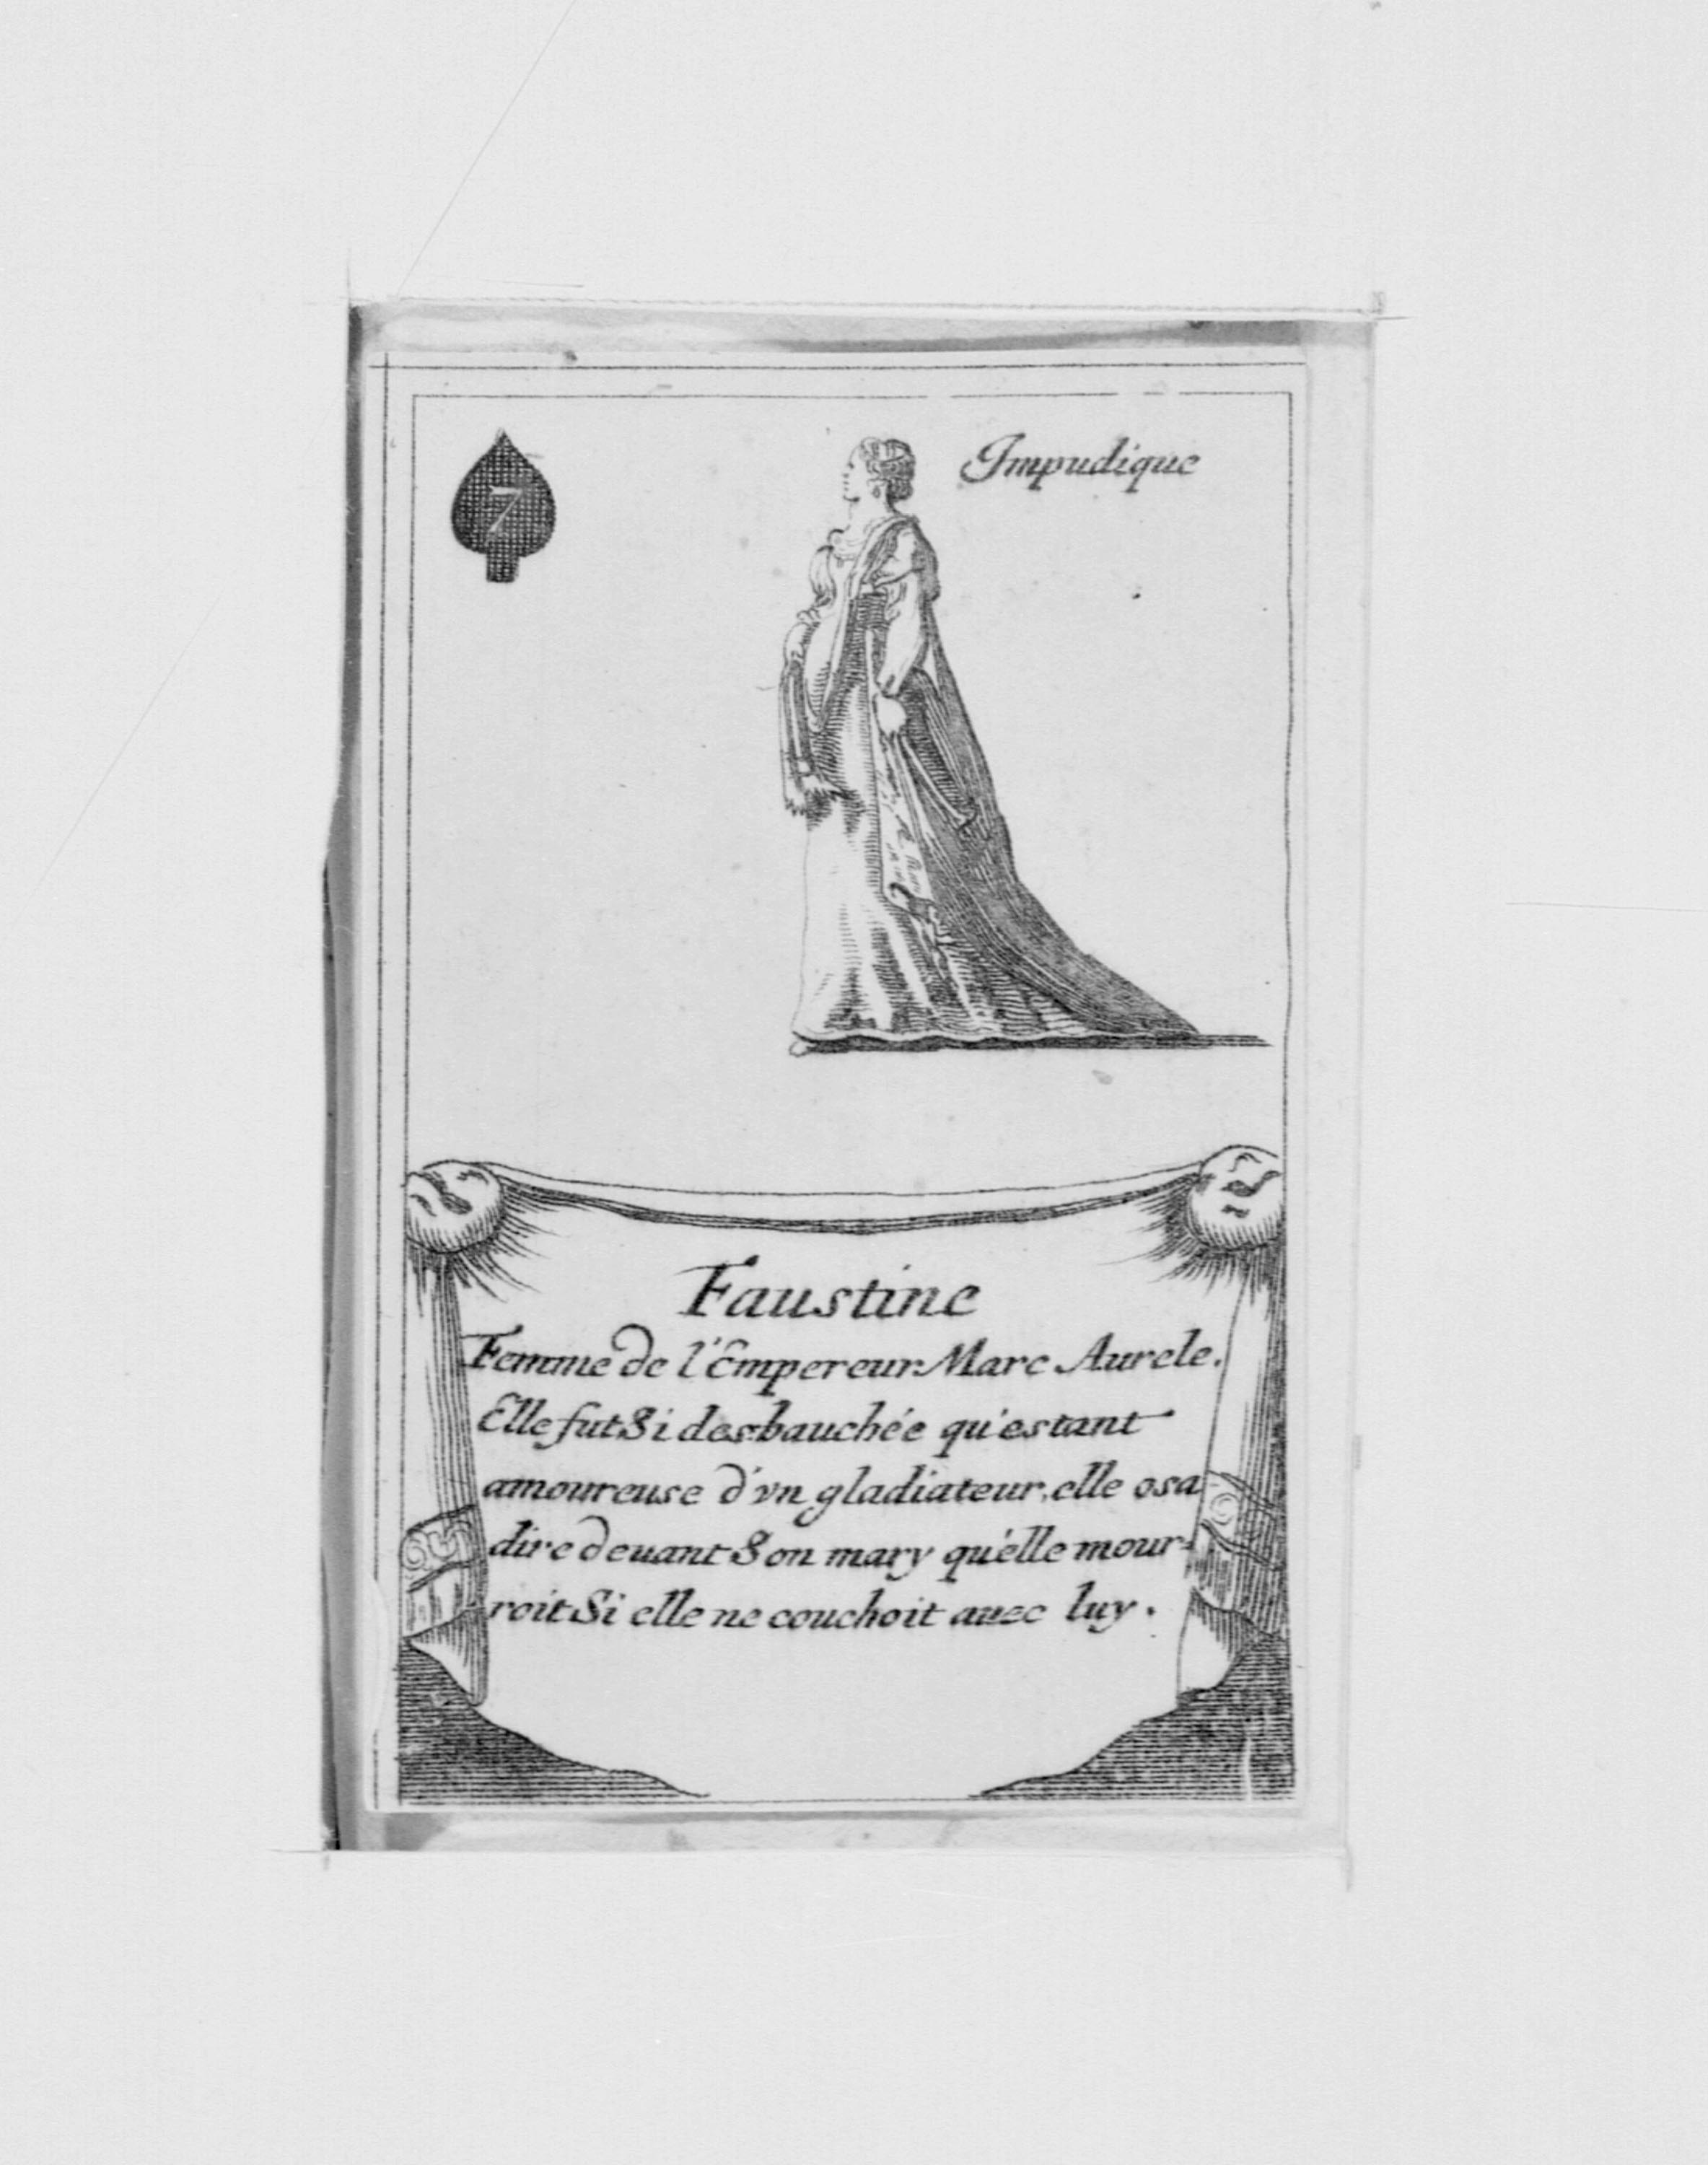 7
Impudique
Faustine
Femme de l'Empereur Marc Aurele.
Elle fut Si desbauchée qu'estant
amoureuse d'vn gladiateur, elle osa
dire deuant Son mary qu'elle mour-
roit Si elle ne couchoit auec luy.